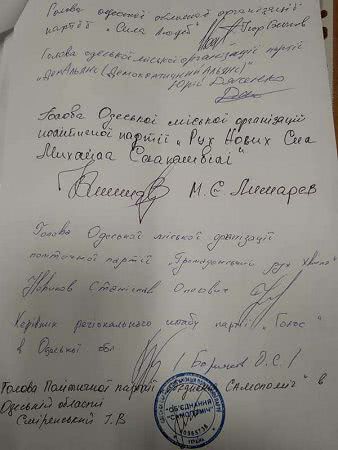 Голова одеської обласної організації
партії „Сила людей"
Голова одеської міської організації партії
„ДемАльянс (Демократичний Альянс)"
Юрій Дяченко
Голова Одеської міської організацій
політичної партії „Рух Нових Сил
Михайла Саакашвілі"
М.Є. Лимарев
Голова Одеської міської організації
політичної партії „Громадянський рух Хвиля"
Новиков Станіслав Олегович
Керівник регіонального штабу партії „Голос"
в Одеській обл
Голова Політичної партії "Об'єднання Самопоміч" в
Одеській області
І.В
ОБ'ЄДНАННЯ
"САМОПОМІЧ"